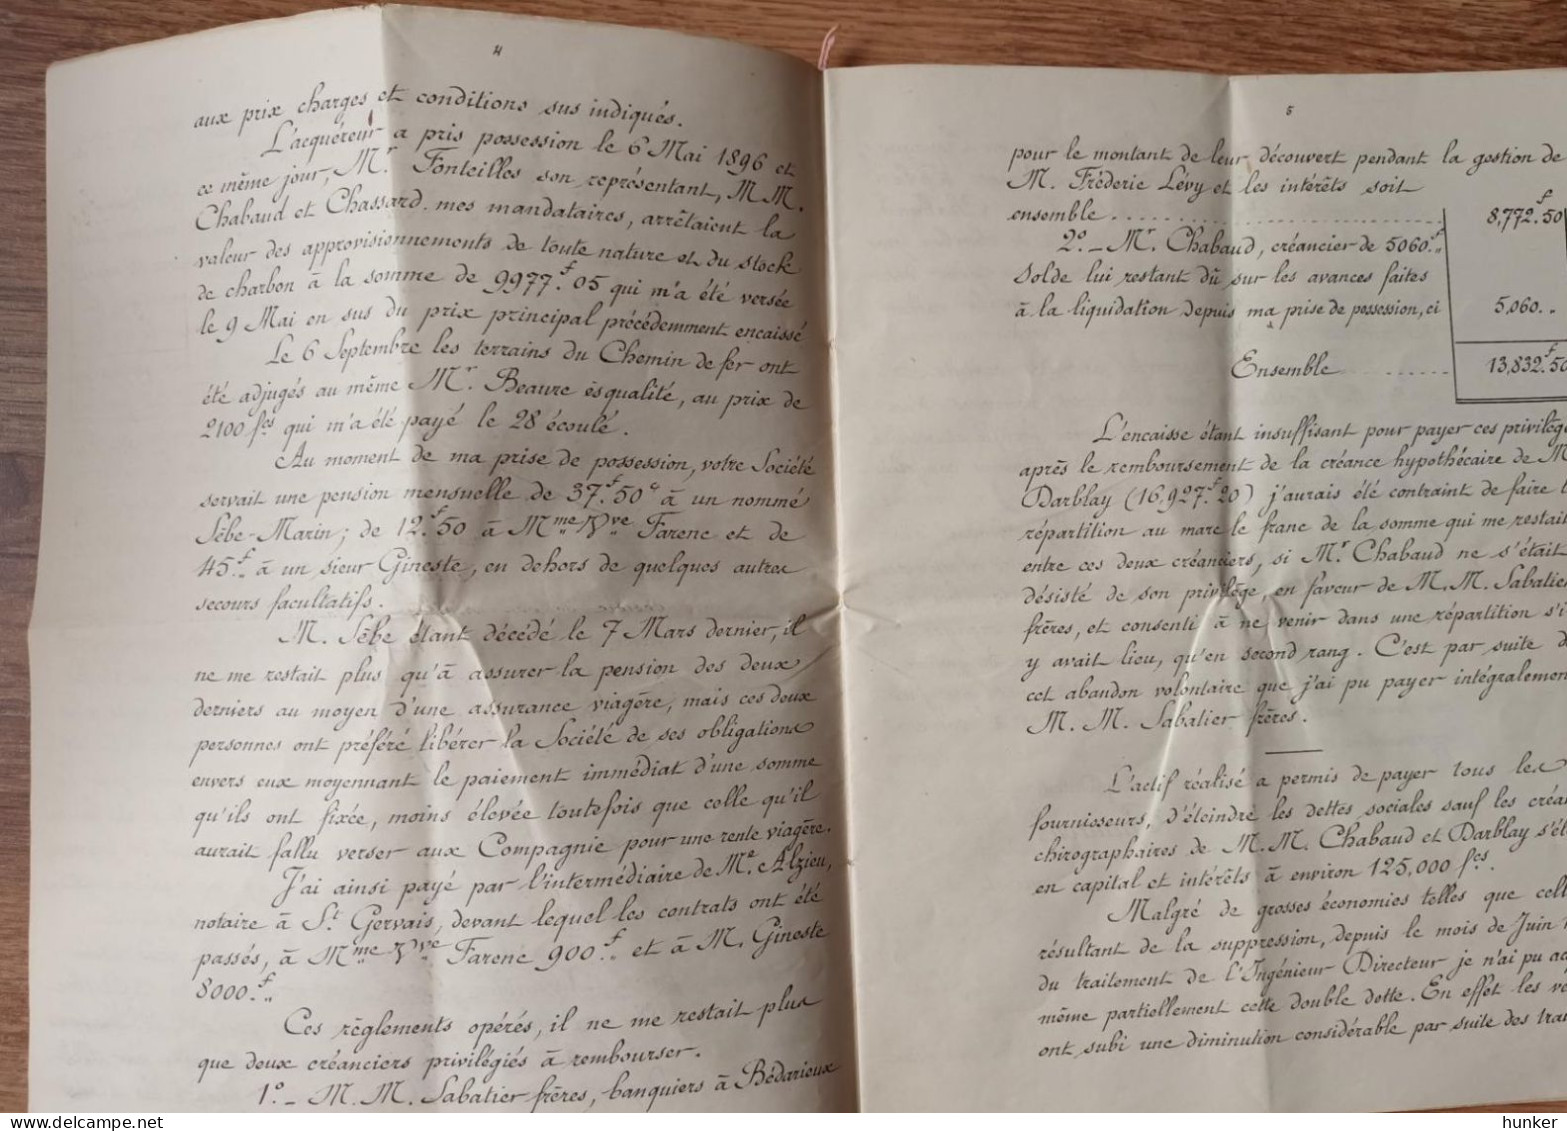 4
aux prix charges et conditions sus indiqués.
L'acquéreur a pris possession le 6 Mai 1896 et
ce même jour, Mr Fonteilles son représentant, M.M.
Chabaud et Chassard mes mandataires, arrêtaient la
valeur des approvisionnements de toute nature et du stock
de charbon à la somme de 9977f.05 qui m'a été versée
le 9 Mai en sus du prix principal précédemment encaissé
Le 6 Septembre les terrains du Chemin de fer ont
été adjugés au même Mr. Beaure èsqualité, au prix de
2100 fcs qui m'a été payé le 28 écoulé.
Au moment de ma prise de possession, votre Société
servait une pension mensuelle de 37f.50c à un nommé
Sèbe-Marin; de 12f.50 à Mme Vve Farenc et de
45f.. à un sieur Gineste, en dehors de quelques autres
secours facultatifs.
M. Sèbe étant décédé le 7 Mars dernier, il
ne me restait plus qu'à assurer la pension des deux
derniers au moyen d'une assurance viagère, mais ces deux
personnes ont préféré libérer la Société de ses obligations
envers eux moyennant le paiement immédiat d'une somme
qu'ils ont fixée, moins élevée toutefois que celle qu'il
aurait fallu verser aux Compagnie pour une rente viagère.
J'ai ainsi payé par l'intermédiaire de Me Alzieu,
notaire à St Gervais, devant lequel les contrats ont été
passés, à Mme Vve Farenc 900f.. et à M. Gineste
8000.f..
Ces règlements opérés, il ne me restait plus
que deux créanciers privilégiés à rembourser.
1º._ M.M. Sabatier frères, banquiers à Bédarieux
5
pour le montant de leur découvert pendant la gestion de
M. Fréderic Lévy et les intérêts soit
ensemble.................... 8,772.f50
2º._ Mr. Chabaud, créancier de 5060.f..
Solde lui restant dû sur les avances faites
à la liquidation depuis ma prise de possession, ci 5,060. ..
Ensemble.......... 13,832.f50
L'encaisse étant insuffisant pour payer ces
après le remboursement de la créance hypothécaire de
Darblay (16.927.f20) j'aurais été contraint de faire
répartition au marc le franc de la somme qui me
entre ces deux créanciers, si Mr Chabaud ne s'était
désisté de son privilège, en faveur de M.M.
frères, et consenti à ne venir dans une répartition
y avait lieu, qu'en second rang. C'est par suite
cet abandon volontaire que j'ai pu payer
M. M. Sabatier frères.
L'actif réalisé a permis de payer tous les
fournisseurs, d'éteindre les dettes sociales sauf les
chirographaires de M.M. Chabaud et Darblay
en capital et intérêts à environ 125,000 fcs.
Malgré de grosses économies telles que
résultant de la suppression, depuis le mois de Juin
du traitement de l'Ingénieur Directeur je n'ai pu
même partiellement cette double dette. En effet les
ont subi une diminution considérable par suite des
hunker